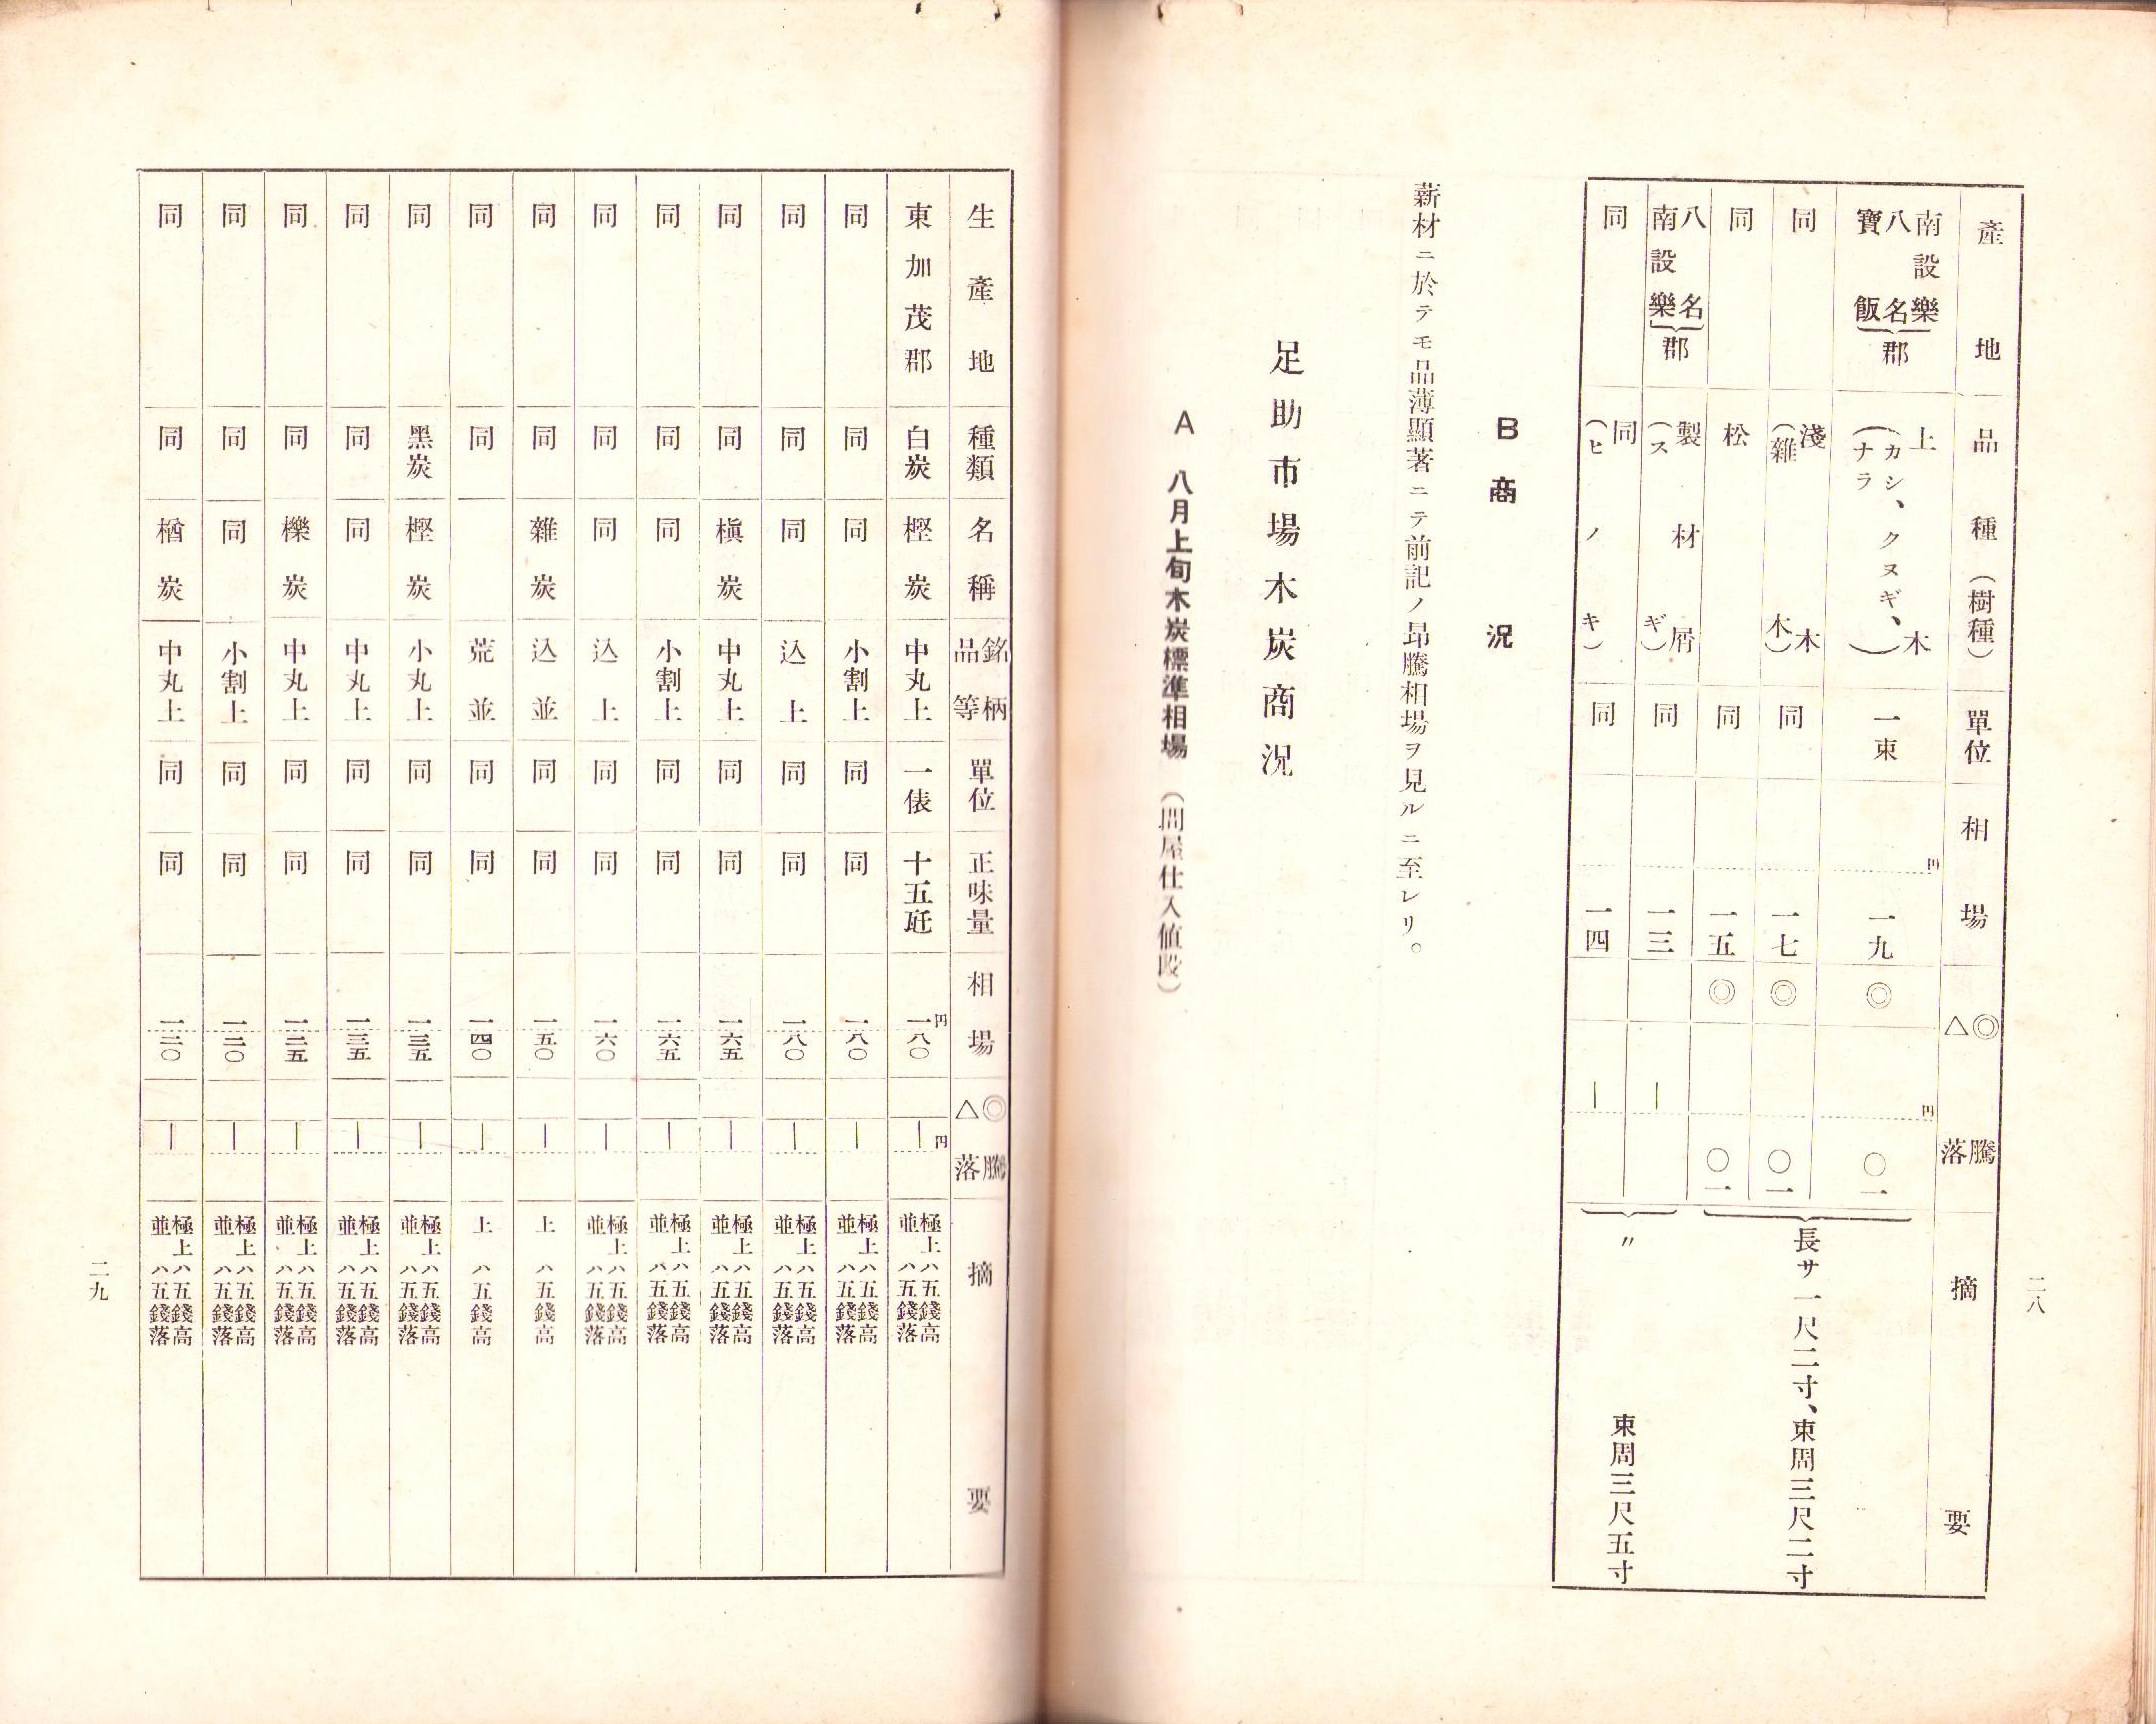 二八
產地 品種（樹種） 單位 相場 ◎△騰落 摘要
南設樂 八名 寶飯 郡 上木（カシ、クヌギ、ナラ） 一束 円 一九 ◎ 円 〇一
同 淺木（雜木） 同 一七 ◎ 〇一
同 松 同 一五 ◎ 〇一
長サ一尺二寸、束周三尺二寸
八名 南設樂 郡 製材屑（スギ） 同 一三 ｜
同 同（ヒノキ） 同 一四 ｜
〃 束周三尺五寸
B 商況
薪材ニ於テモ品薄顯著ニテ前記ノ昻騰相場ヲ見ルニ至レリ。
足助市場木炭商況
A 八月上旬木炭標準相場（問屋仕入値段）
生產地 種類 名稱 銘柄品等 單位 正味量 相場 ◎△騰落 摘要
東加茂郡 白炭 樫炭 中丸上 一俵 十五瓩 円 一八〇 円 ｜ 極上ハ五錢高 並ハ五錢落
同 同 同 小割上 同 同 一八〇 ｜ 極上ハ五錢高 並ハ五錢落
同 同 同 込上 同 同 一八〇 ｜ 極上ハ五錢高 並ハ五錢落
同 同 槇炭 中丸上 同 同 一六五 ｜ 極上ハ五錢高 並ハ五錢落
同 同 同 小割上 同 同 一六五 ｜ 極上ハ五錢高 並ハ五錢落
同 同 同 込上 同 同 一六〇 ｜ 極上ハ五錢高 並ハ五錢落
同 同 雜炭 込並 同 同 一五〇 ｜ 上ハ五錢高
同 同 荒並 同 同 一四〇 ｜ 上ハ五錢高
同 黑炭 樫炭 小丸上 同 同 一三五 ｜ 極上ハ五錢高 並ハ五錢落
同 同 同 中丸上 同 同 一三五 ｜ 極上ハ五錢高 並ハ五錢落
同 同 櫟炭 中丸上 同 同 一二五 ｜ 極上ハ五錢高 並ハ五錢落
同 同 同 小割上 同 同 一二〇 ｜ 極上ハ五錢高 並ハ五錢落
同 同 楢炭 中丸上 同 同 一二〇 ｜ 極上ハ五錢高 並ハ五錢落
二九